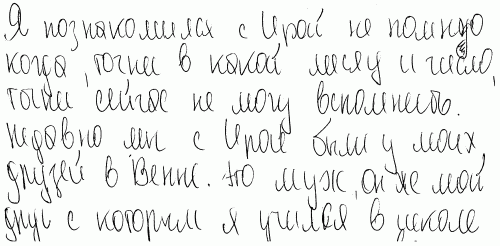 Я познакомился с Ирой не помню
когда, точно в какой месяц и число
точно сейчас не могу вспомнеть.
недавно мы с Ирой были у моих
друзей в Вене. Ею муж, он же мой
друг с которым я учился в школе